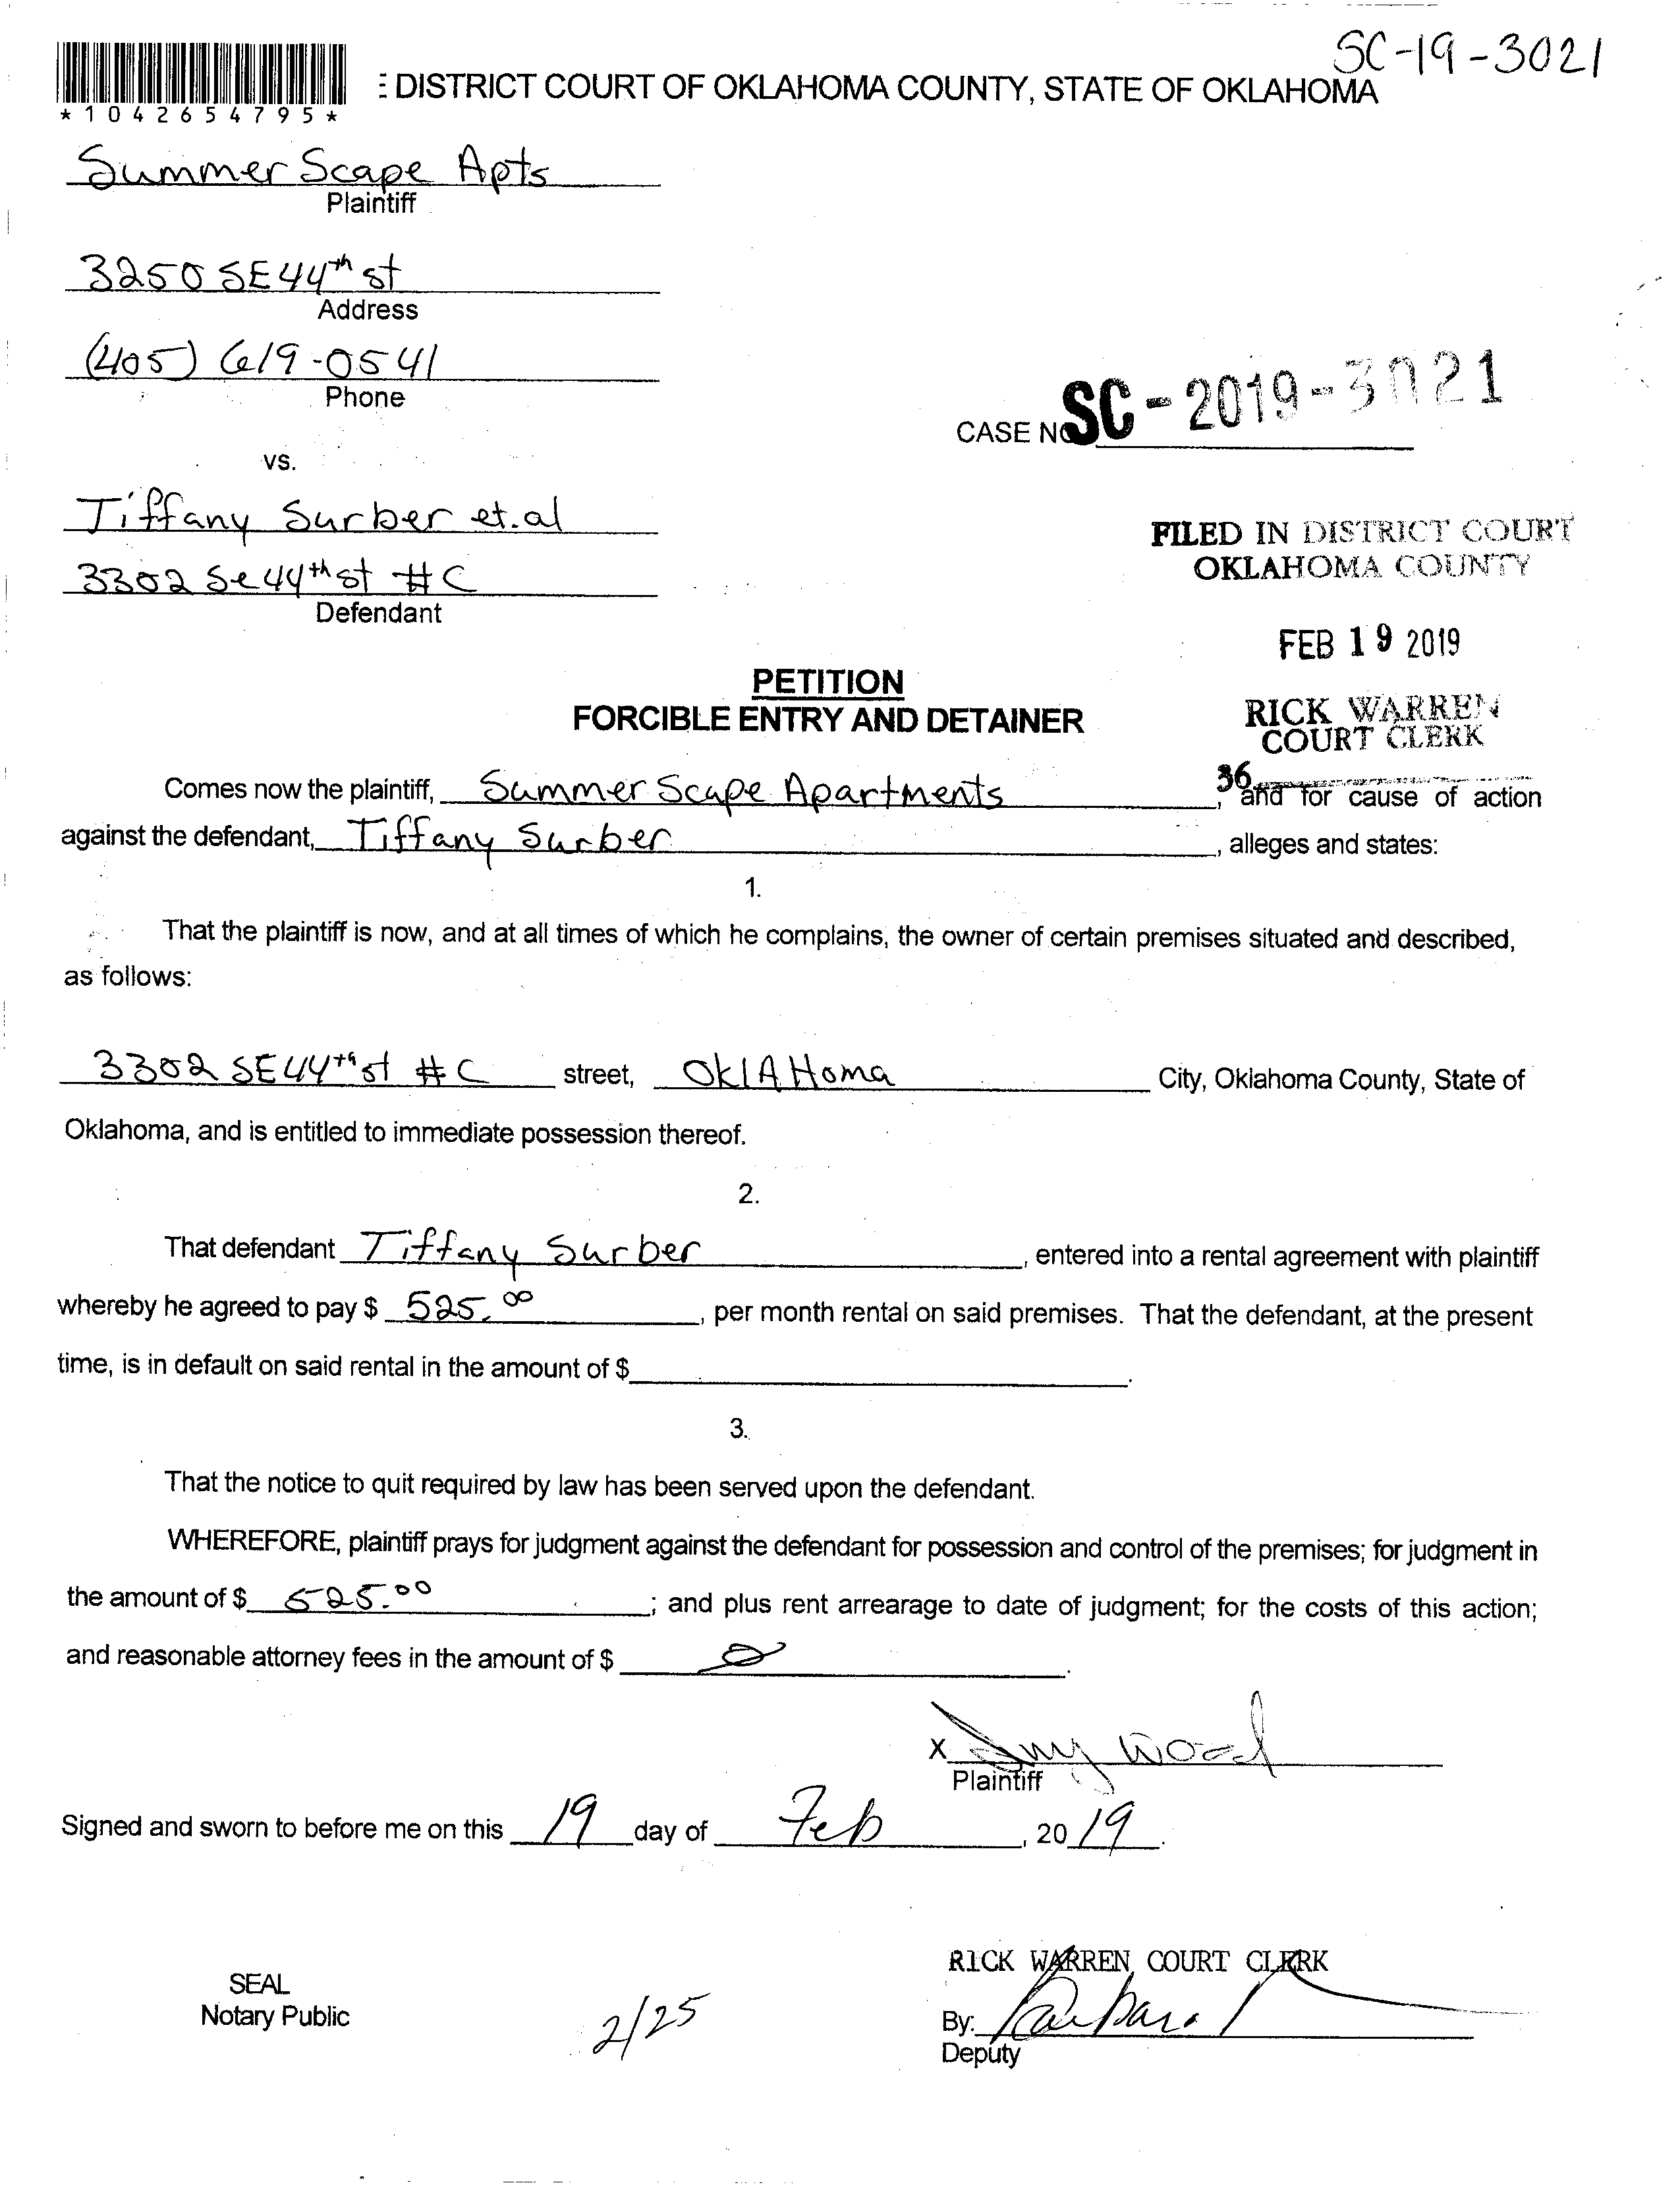 SC-19-3021
: DISTRICT COURT OF OKLAHOMA COUNTY, STATE OF OKLAHOMA
*1042654795*
Summer Scape Apts
Plaintiff
3250 SE 44th st
Address
(405) 619-0541
Phone
CASE NO SC-2019-3021
vs.
Tiffany Surber et.al
3302 Se 44th st #C
Defendant
FILED IN DISTRICT COURT
OKLAHOMA COUNTY
FEB 19 2019
RICK WARREN
COURT CLERK
36
PETITION
FORCIBLE ENTRY AND DETAINER
Comes now the plaintiff, Summer Scape Apartments, and for cause of action
against the defendant, Tiffany Surber, alleges and states:
1.
That the plaintiff is now, and at all times of which he complains, the owner of certain premises situated and described,
as follows:
3302 SE 44th st #C street, OklAHoma City, Oklahoma County, State of
Oklahoma, and is entitled to immediate possession thereof.
2.
That defendant Tiffany Surber, entered into a rental agreement with plaintiff
whereby he agreed to pay $ 525.00, per month rental on said premises. That the defendant, at the present
time, is in default on said rental in the amount of $ .
3.
That the notice to quit required by law has been served upon the defendant.
WHEREFORE, plaintiff prays for judgment against the defendant for possession and control of the premises; for judgment in
the amount of $ 525.00; and plus rent arrearage to date of judgment; for the costs of this action;
and reasonable attorney fees in the amount of $ 0.
X Wood
Plaintiff
Signed and sworn to before me on this 19 day of Feb, 2019.
RICK WARREN, COURT CLERK
SEAL
Notary Public
2/25
By: Barbara
Deputy